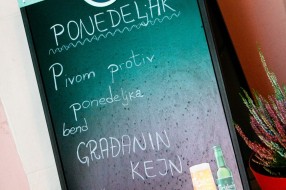 PONEDELJAK
Pivom protiv
ponedeljka
bend
GRAĐANIN
KEJN